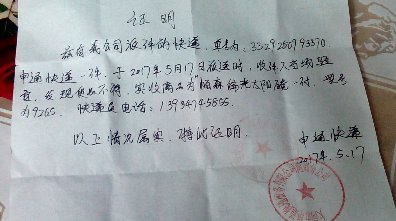 证明
兹有我公司派件的快递,单号为:3329250993370.
申通快递一件,于2017年5月17日派送时,收件人当场验
查,发现货品不符,实收商品为"帕森偏光太阳镜"一付,型号
为9265. 快递员电话:13934745555.
以上情况属实,特此证明.
申通快递
2017年.5.17